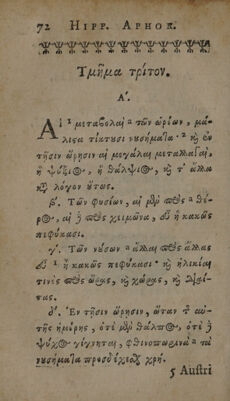 72 HIPP. APHOR.
Τμῆμα τρίτον.
Α΄.
Αἱ ¹ μεταβολαὶ ² τῶν ὡρίων, μά-
λιστα τίκτουσι νυσήματα· ³ καὶ ἐν
τῇσιν ὥρῃσιν αἱ μεγάλαι μεταλλαγαὶ,
ἢ ψύξιος, ἢ θάλψιος, καὶ τ' ἄλλα
κτ̀ λόγον οὕτως.
β΄. Τῶν φυσίων, αἱ μὲν πρὸς ² θέ-
ρος, αἱ ἢ πρὸς χειμῶνα, εὖ ἢ κακῶς
πεφύκασι.
γ΄. Τῶν νύσων ² ἄλλαι πρὸς ἄλλας
εὖ ¹ ἢ κακῶς πεφύκασι· καὶ ἡλικίαι
τινὲς πρὸς ὥρας, καὶ χώρας, καὶ διαί-
τας.
δ΄. Ἐν τῇσιν ὥρῃσιν, ὅταν τ̃ αὐ-
τῆς ἡμέρης, ὁτὲ μὲν θάλπος, ὁτὲ ἢ
ψύχος γίγνηται, φθινοπωρινὰ ² τὰ
νυσήματα προσδέχεσθαι χρή.
5 Austri